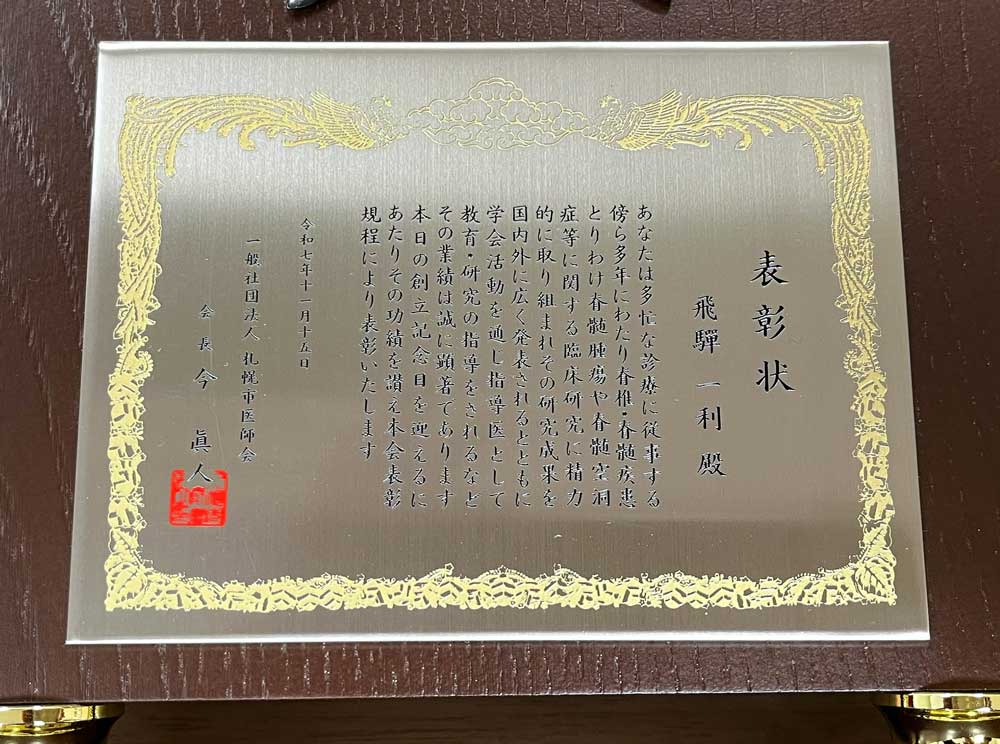 表彰状
飛驒一利殿
あなたは多忙な診療に従事する
傍ら多年にわたり脊椎・脊髄疾患
とりわけ脊髄腫瘍や脊髄空洞
症等に関する臨床研究に精力
的に取り組まれその研究成果を
国内外に広く発表されるとともに
学会活動を通し指導医として
教育・研究の指導をされるなど
その業績は誠に顕著であります
本日の創立記念日を迎えるに
あたりその功績を讃え本会表彰
規程により表彰いたします
令和七年十一月十五日
一般社団法人 札幌市医師会
会長 今 眞人